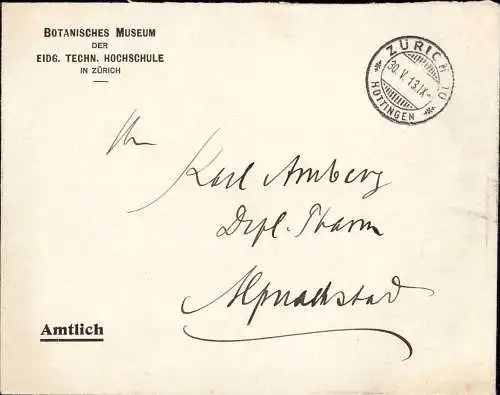 BOTANISCHES MUSEUM
DER
EIDG. TECHN. HOCHSCHULE
IN ZÜRICH
ZÜRICH 10
30. V. 13. IX-
HOTTINGEN
Karl Amberg
Dipl. Pharm
Alpnachstad
Amtlich